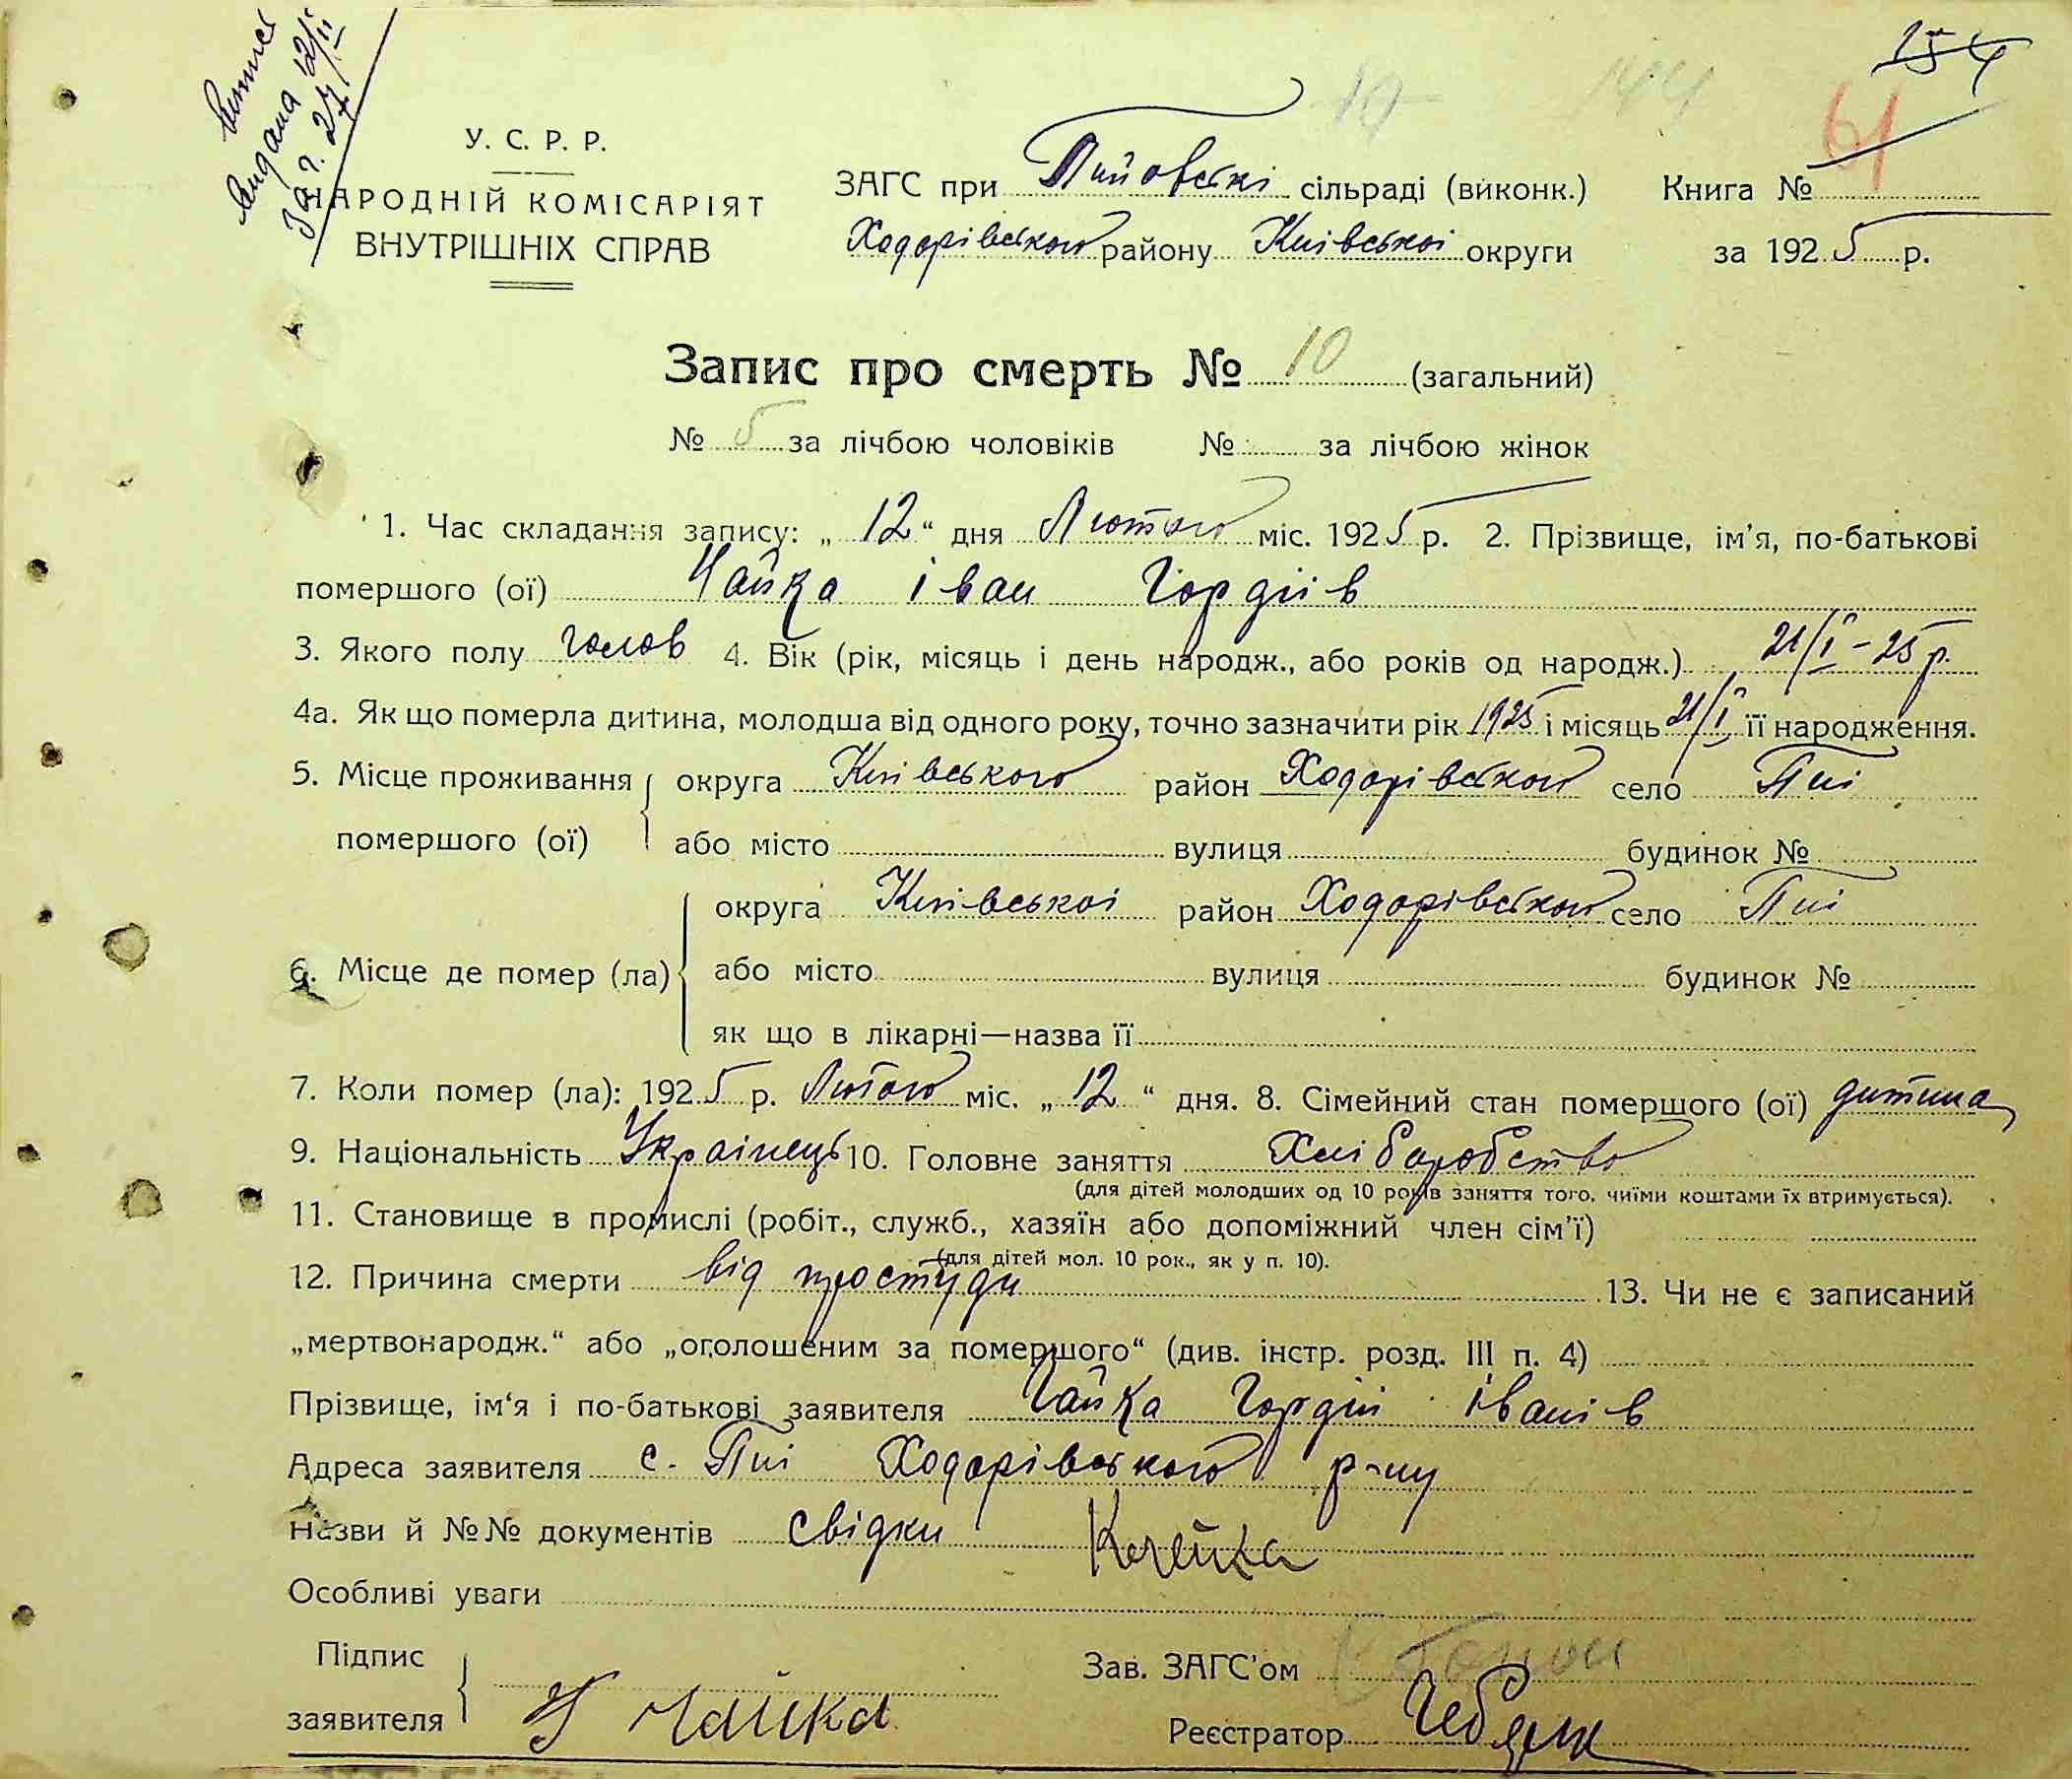 Випис
видана 12/II
за ч. 27
154
19
144
61
У. С. Р. Р.
НАРОДНІЙ КОМІСАРІЯТ
ВНУТРІШНІХ СПРАВ
ЗАГС при Пиівській сільраді (виконк.) Книга №
Ходорівського району Киівськоі округи за 1925 р.
Запис про смерть № 10 (загальний)
№ 5 за лічбою чоловіків № за лічбою жінок
1. Час складання запису: „12“ дня Лютого міс. 1925 р. 2. Прізвище, ім’я, по-батькові
помершого (ої) Чайка іван Гордіів
3. Якого полу чолов 4. Вік (рік, місяць і день народж., або років од народж.) 21/I – 25 р.
4а. Як що померла дитина, молодша від одного року, точно зазначити рік 1925 і місяць 21/I її народження.
5. Місце проживання округа Киівського район Ходорівського село Пиі
помершого (ої) або місто вулиця будинок №
округа Киівськоі район Ходорівського село Пиі
6. Місце де помер (ла) або місто вулиця будинок №
як що в лікарні—назва її
7. Коли помер (ла): 1925 р. Лютого міс. „12“ дня. 8. Сімейний стан помершого (ої) дитина
9. Національність Украінець 10. Головне заняття Хліборобство
(для дітей молодших од 10 років заняття того, чиїми коштами їх втримується).
11. Становище в промислі (робіт., служб., хазяїн або допоміжний член сім’ї)
(для дітей мол. 10 рок., як у п. 10).
12. Причина смерти від простуди 13. Чи не є записаний
„мертвонародж.“ або „оголошеним за помершого“ (див. інстр. розд. III п. 4)
Прізвище, ім‘я і по-батькові заявителя Чайка Гордій іванів
Адреса заявителя с. Пиі Ходорівського р-ну
Назви й №№ документів свідки
Особливі уваги
Підпис Зав. ЗАГС’ом
заявителя Чайка Реєстратор